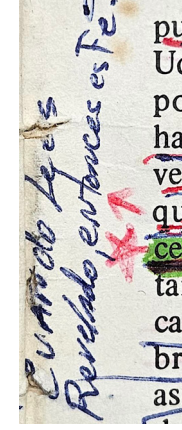 Cuando lees
Revelado entonces es Fe
pu
Uc
po
ha
ve
qu
ce
ta
ca
br
as